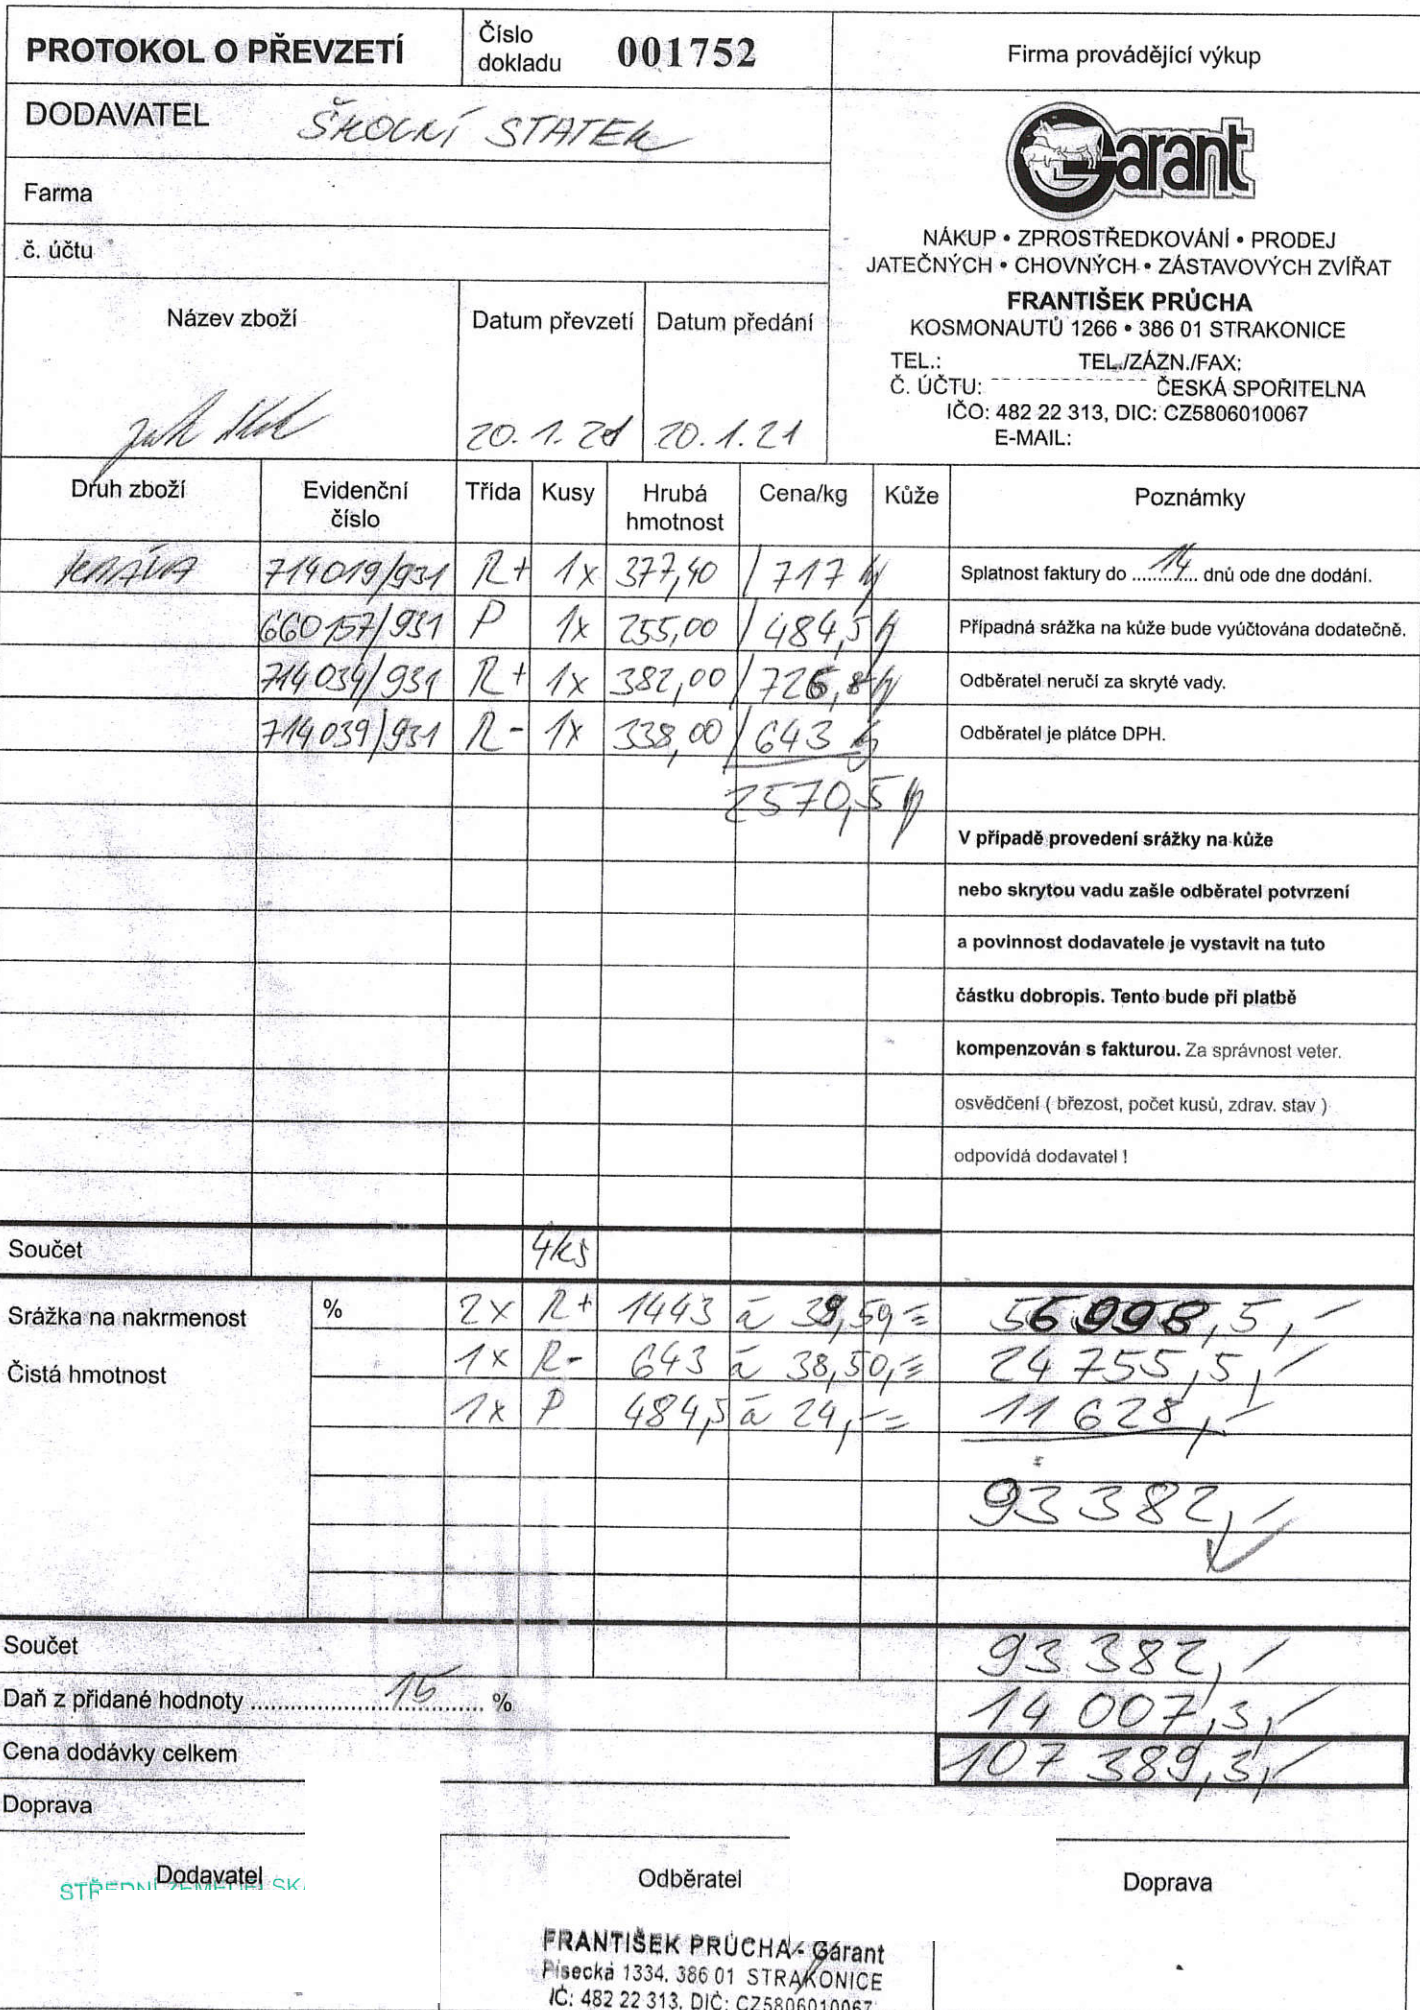 PROTOKOL O PŘEVZETÍ
Číslo dokladu 001752
Firma provádějící výkup
DODAVATEL ŠKOLNÍ STATEK
Farma
č. účtu
Garant
NÁKUP • ZPROSTŘEDKOVÁNÍ • PRODEJ
JATEČNÝCH • CHOVNÝCH • ZÁSTAVOVÝCH ZVÍŘAT
FRANTIŠEK PRŮCHA
KOSMONAUTŮ 1266 • 386 01 STRAKONICE
TEL.: TEL./ZÁZN./FAX:
Č. ÚČTU: ČESKÁ SPOŘITELNA
IČO: 482 22 313, DIC: CZ5806010067
E-MAIL:
Název zboží Datum převzetí Datum předání
jat. skot 20.1.21 20.1.21
Druh zboží Evidenční číslo Třída Kusy Hrubá hmotnost Cena/kg Kůže Poznámky
KRÁVA 714019/931 R+ 1x 377,40 / 717 kg Splatnost faktury do 14 dnů ode dne dodání.
660157/931 P 1x 255,00 / 484,5 kg Případná srážka na kůže bude vyúčtována dodatečně.
714034/931 R+ 1x 382,00 / 726, kg Odběratel neručí za skryté vady.
714039/931 R- 1x 338,00 / 643 kg Odběratel je plátce DPH.
2570,5 kg
V případě provedení srážky na kůže
nebo skrytou vadu zašle odběratel potvrzení
a povinnost dodavatele je vystavit na tuto
částku dobropis. Tento bude při platbě
kompenzován s fakturou. Za správnost veter.
osvědčení ( březost, počet kusů, zdrav. stav )
odpovídá dodavatel !
Součet 4ks
Srážka na nakrmenost % 2x R+ 1443 à 39,50,= 56 998,5,-
Čistá hmotnost 1x R- 643 à 38,50,= 24 755,5,-
1x P 484,5 à 24,-= 11 628,-
93 382,-
Součet 93 382,-
Daň z přidané hodnoty 15 % 14 007,3,-
Cena dodávky celkem 107 389,3,-
Doprava
Dodavatel Odběratel Doprava
STŘEDNÍ ZEMĚDĚLSKÁ
FRANTIŠEK PRŮCHA - Garant
Písecká 1334, 386 01 STRAKONICE
IČ: 482 22 313, DIČ: CZ5806010067